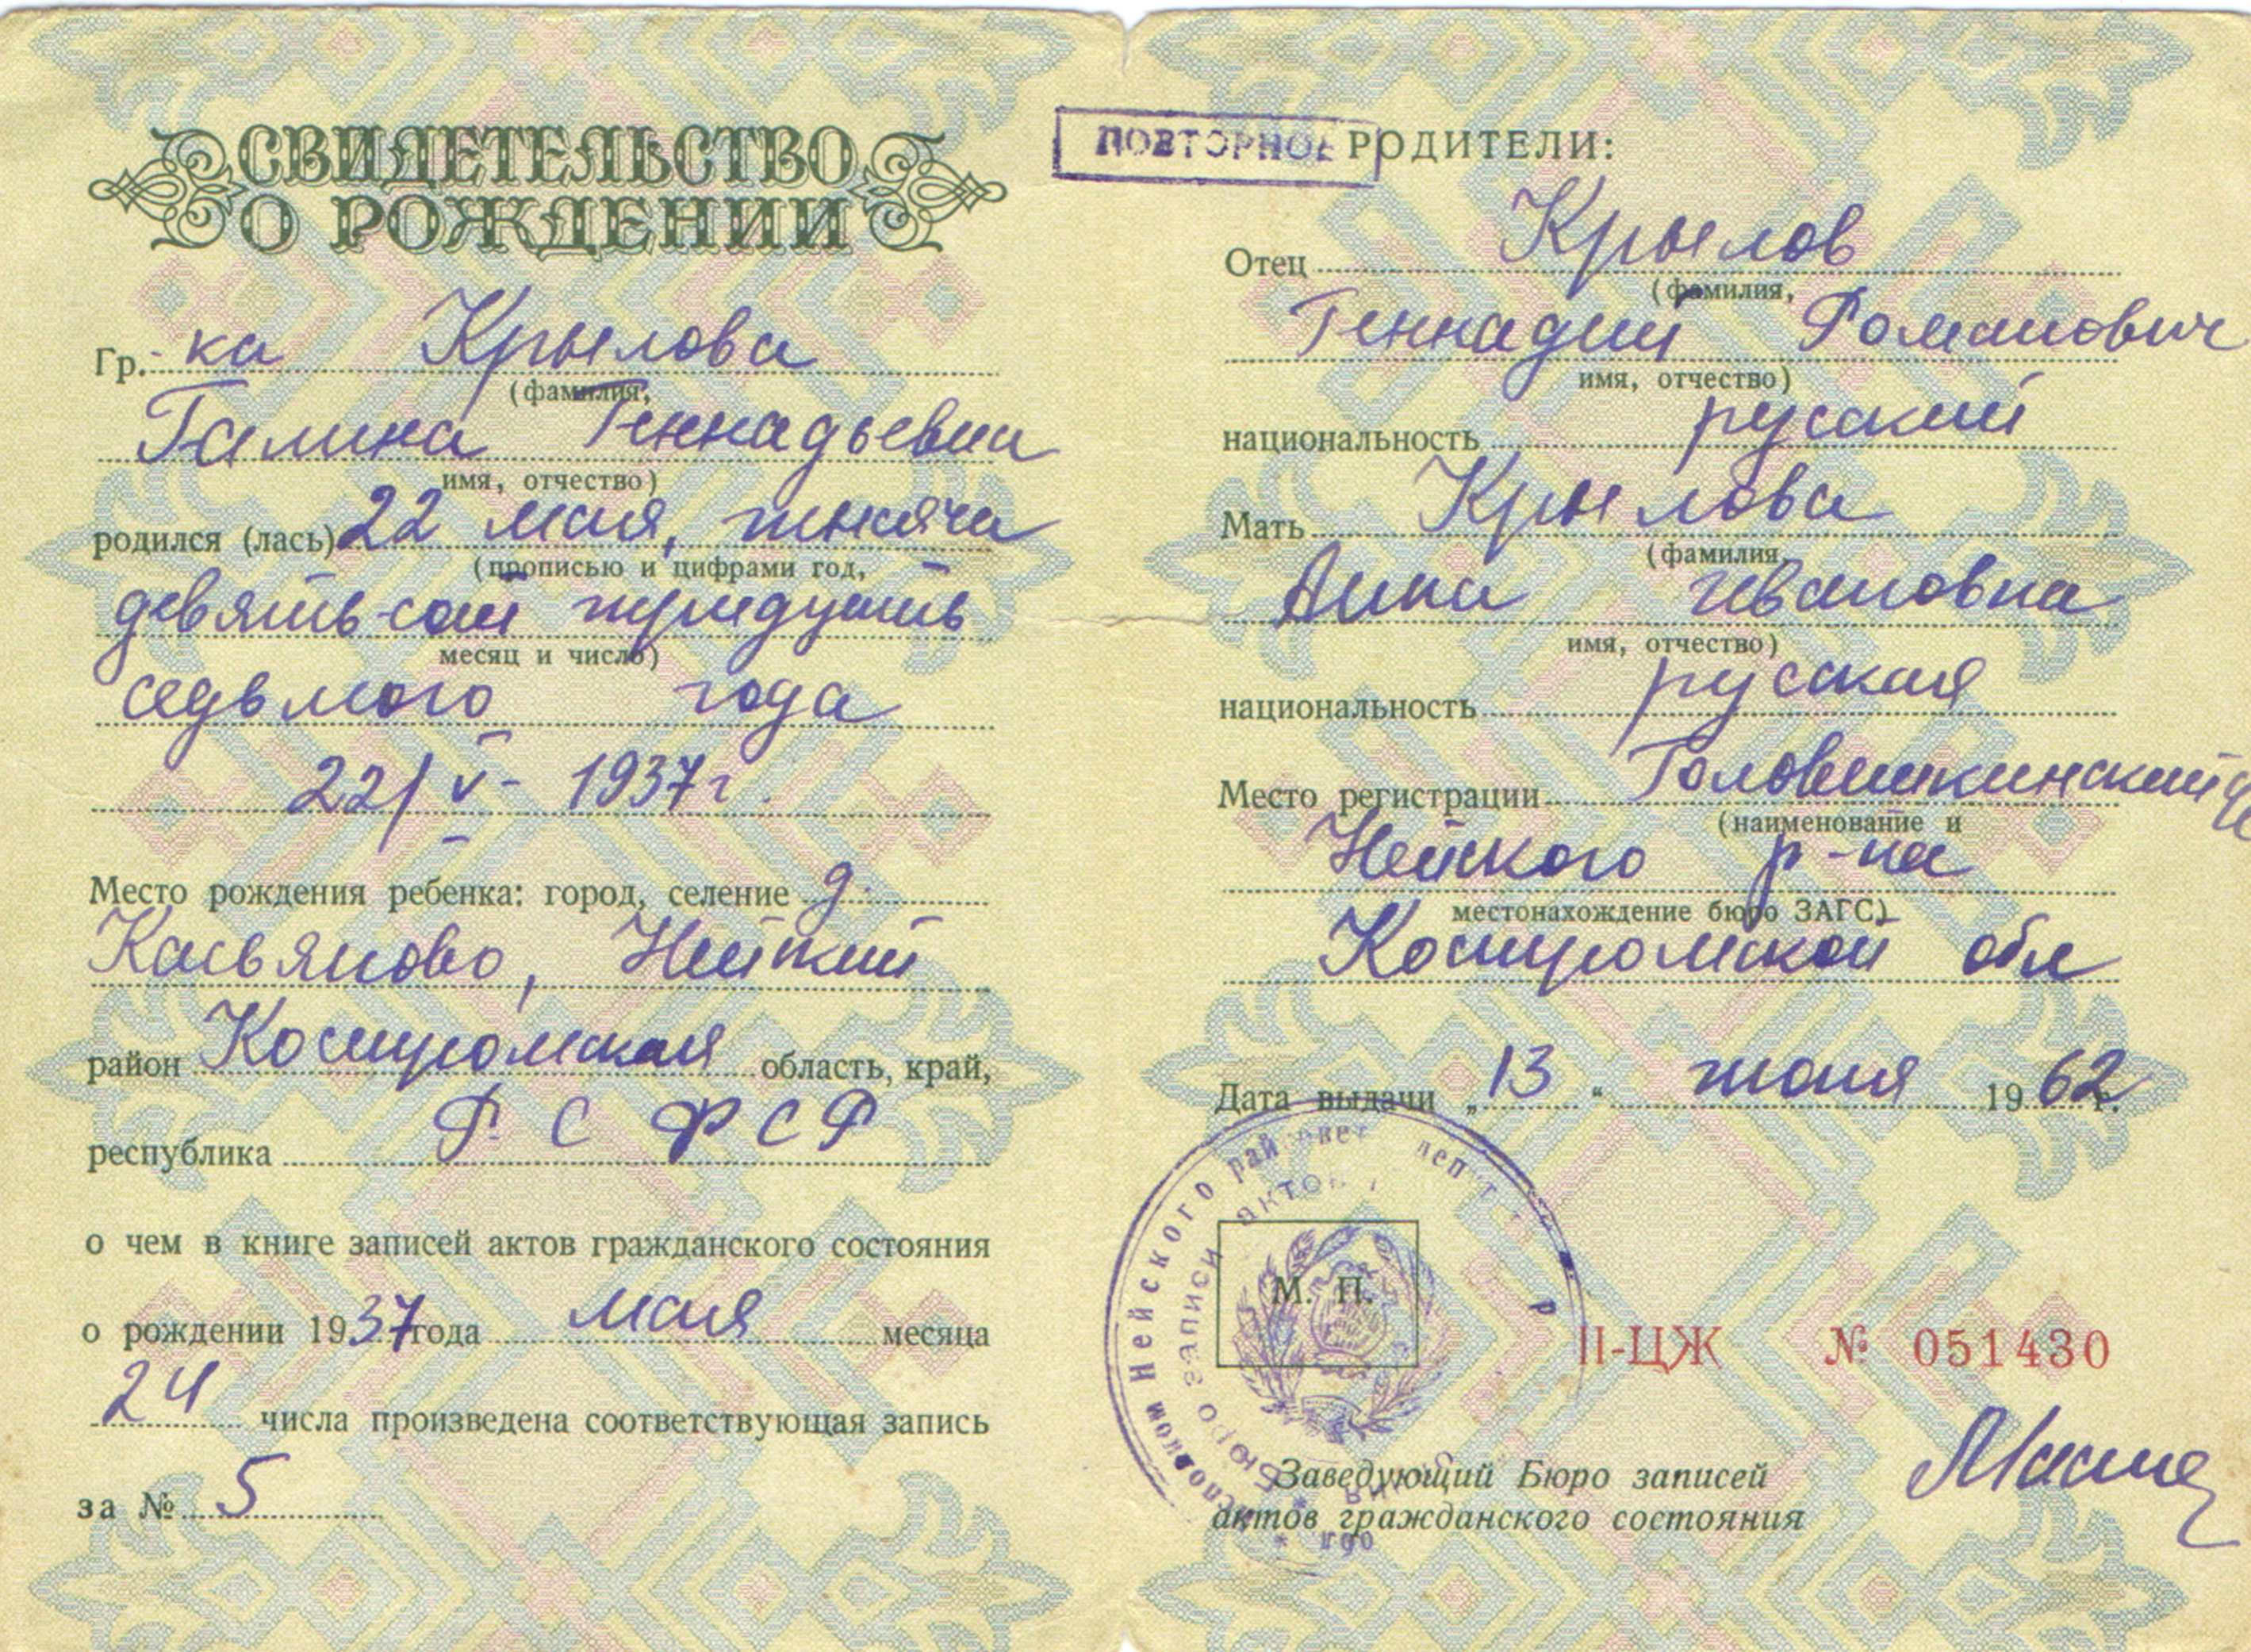 СВИДЕТЕЛЬСТВО
О РОЖДЕНИИ
Гр.-ка Крылова
(фамилия,
Галина Геннадьевна
имя, отчество)
родился (лась) 22 мая, тысяча
(прописью и цифрами год,
девять-сот тридцать
месяц и число)
седьмого года
22/V- 1937г.
Место рождения ребенка: город, селение д.
Касьяново, Нейский
район Костромская область, край,
республика РСФСР
о чем в книге записей актов гражданского состояния
о рождении 1937 года мая месяца
24 числа произведена соответствующая запись
за № 5
ПОВТОРНОЕ
РОДИТЕЛИ:
Отец Крылов
(фамилия,
Геннадий Романович
имя, отчество)
национальность русский
Мать Крылова
(фамилия,
Анна Ивановна
имя, отчество)
национальность русская
Место регистрации
(наименование и
Нейского р-на
местонахождение бюро ЗАГС)
Костромской обл
Дата выдачи „13“ июня 1962 г.
Нейского
бюро записи актов
М. П.
II-ЦЖ № 051430
Заведующий Бюро записей
актов гражданского состояния